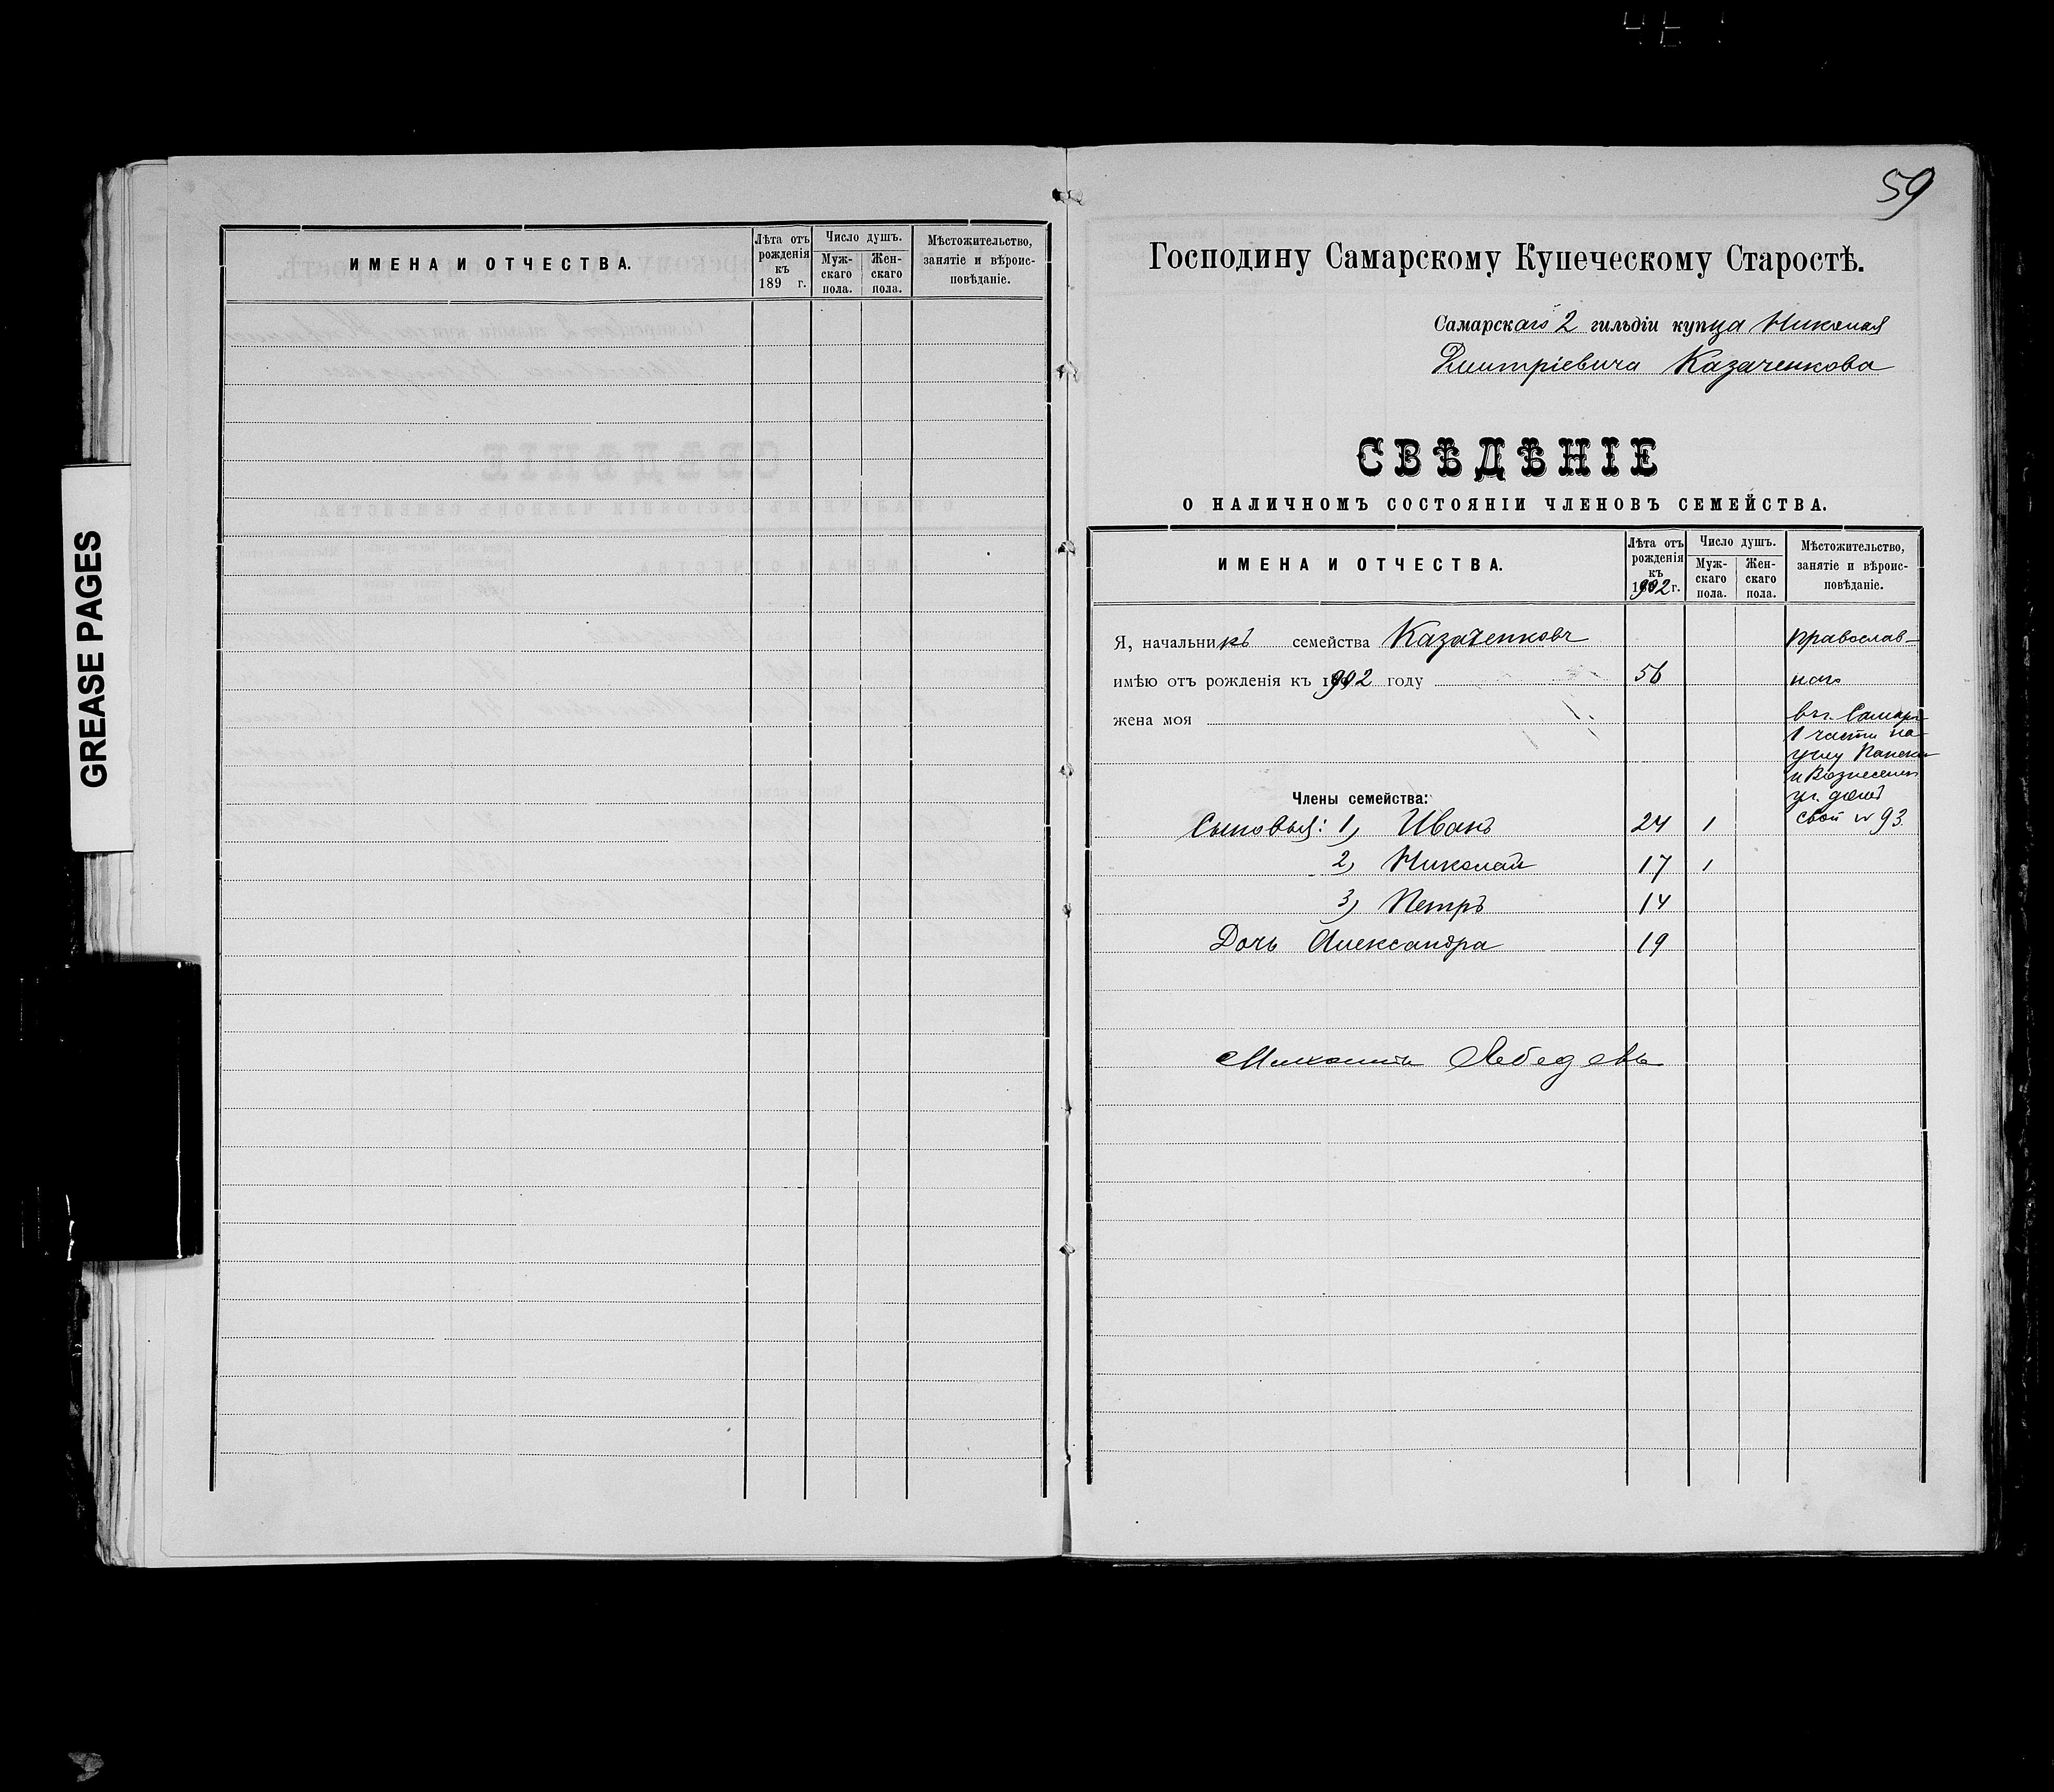 GREASE PAGES
ИМЕНА И ОТЧЕСТВА.
Лѣта отъ рожденія къ 189 г.
Число душъ.
Муж-скаго пола.
Жен-скаго пола.
Мѣстожительство, занятіе и вѣроис-повѣданіе.
59
Господину Самарскому Купеческому Старостѣ.
Самарскаго 2 гильдіи купца Николая
Дмитріевича Казаченкова
СВѢДѢНІЕ
О НАЛИЧНОМЪ СОСТОЯНІИ ЧЛЕНОВЪ СЕМЕЙСТВА.
ИМЕНА И ОТЧЕСТВА.
Лѣта отъ рожденія къ 1902 г.
Число душъ.
Муж-скаго пола.
Жен-скаго пола.
Мѣстожительство, занятіе и вѣроис-повѣданіе.
Я, начальникъ семейства Казаченковъ православ-
имѣю отъ рожденія къ 1902 году 56 наго
жена моя въ г. Самарѣ
1 части на
углу Панской
и Вознесенск
ул. домъ
Члены семейства:
свой № 93.
Сыновья: 1, Иванъ 24 1
2, Николай 17 1
3, Петръ 14
Дочь Александра 19
Лебедевъ